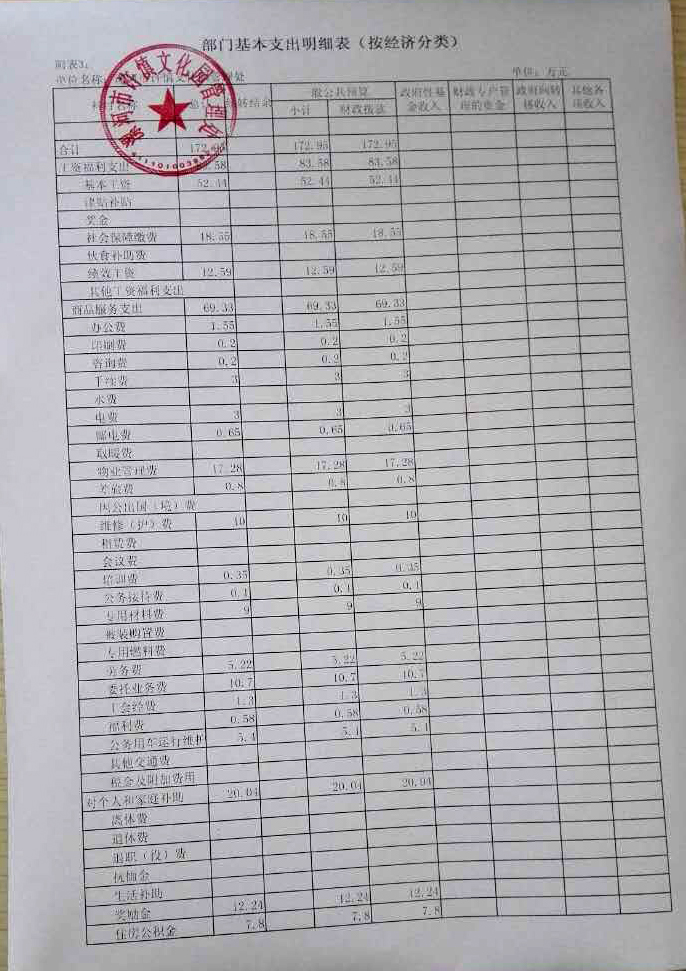 部门基本支出明细表（按经济分类）
附表3：
单位名称： 单位：万元
科目名称 总计 结转结余 一般公共预算 政府性基金收入 财政专户管理的资金 政府间转移收入 其他各项收入
小计 财政拨款
合计 172.95 172.95 172.95
工资福利支出 83.58 83.58 83.58
基本工资 52.44 52.44 52.44
津贴补贴
奖金
社会保障缴费 18.55 18.55 18.55
伙食补助费
绩效工资 12.59 12.59 12.59
其他工资福利支出
商品服务支出 69.33 69.33 69.33
办公费 1.55 1.55 1.55
印刷费 0.2 0.2 0.2
咨询费 0.2 0.2 0.2
手续费 3 3 3
水费
电费 3 3 3
邮电费 0.65 0.65 0.65
取暖费
物业管理费 17.28 17.28 17.28
差旅费 0.8 0.8 0.8
因公出国（境）费
维修（护）费 10 10 10
租赁费
会议费
培训费 0.35 0.35 0.35
公务接待费 0.1 0.1 0.1
专用材料费 9 9 9
被装购置费
专用燃料费
劳务费 5.22 5.22 5.22
委托业务费 10.7 10.7 10.7
工会经费 1.3 1.3 1.3
福利费 0.58 0.58 0.58
公务用车运行维护 5.4 5.4 5.4
其他交通费
税金及附加费用
对个人和家庭补助 20.04 20.04 20.04
离休费
退休费
退职（役）费
抚恤金
生活补助
奖励金 12.24 12.24 12.24
住房公积金 7.8 7.8 7.8